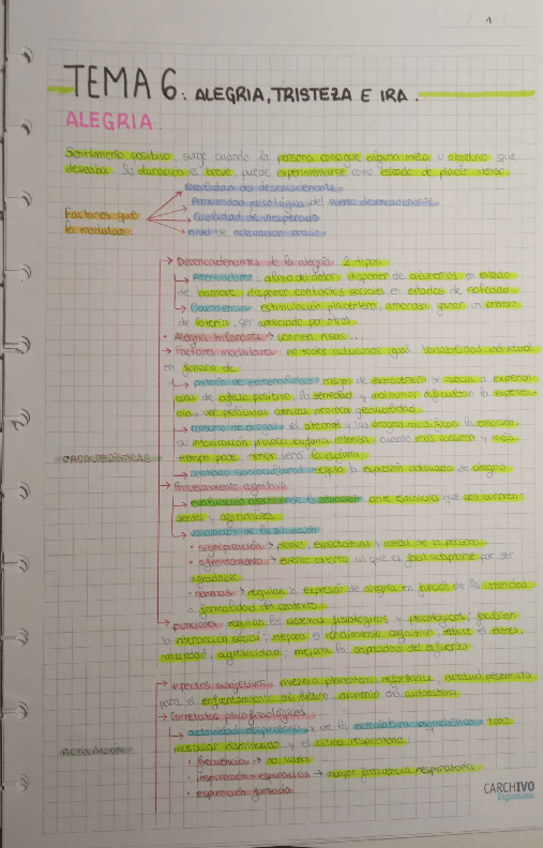 1
TEMA 6: ALEGRIA, TRISTEZA E IRA.
ALEGRIA.
Sentimiento positivo, surge cuando la persona consigue alguna meta u objetivo que
deseaba. Su duración es breve, puede experimentarse como estado de placer intenso.
cualidad del desencadenante
Proximidad psicológica del evento desencadenante
Factores que
la modulan
Cualidad de inesperado
nivel de activación previo
→ Desencadenantes de la alegria: 2 tipos
alivio de dolor, disponer de alimentos en estado
de hambre, disponer contactos sociales en estados de
estimulación placentera, amorosa, ganar un premio
de loteria, ser apreciado por otros
• Alegria hilarante → sonrisa, risas...
→ Factores moduladores: no todos actuamos igual. Variabilidad individual
en función de:
patrón de personalidad: rasgos de extraversión se asocia a experien
cias de afecto positivo, la seriedad y
consumo de drogas: el alcohol y las drogas modifican la emoción.
La intoxicación provoca euforia intensa, cuanto más y más
tiempo pase, menor será la euforia.
CARACTERÍSTICAS
contexto sociocultural: regula la expresión de alegria
→ Procesamiento cognitivo
evaluación afectiva de la situación: ante estímulos que son sorpren
dentes y agradables.
valoración de la situación
• significación → planes, expectativas y metas de la persona
• afrontamiento → evento externo al que es facil adaptarse por ser
agradable
• normas → regulan la expresión de alegria en función de la intimidad
o formalidad del contexto.
→ Funciones: regulan los sistemas fisiológicos y psicológicos; facilitan
la interacción social; mejora el rendimiento cognitivo; reduce el estrés,
ansiedad, agresividad; mejora la capacidad del esfuerzo.
→ Efectos subjetivos: vivencia placentera, reforzante; actitud
para el enfrentamiento al futuro, aumento del autoestima.
→ Correlatos psicofisiológicos
actividad respiratoria: de la musculatura esquelética, tono
muscular disminuido y el ritmo respiratorio.
ACTIVACIÓN
• frecuencia → no varía
→ mayor frecuencia respiratoria
• espiración forzada
CARCHIVO